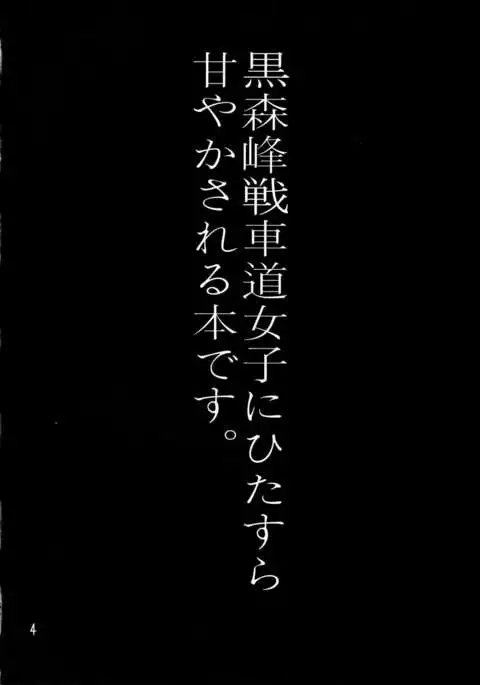 黒森峰戦車道女子にひたすら
甘やかされる本です。
4